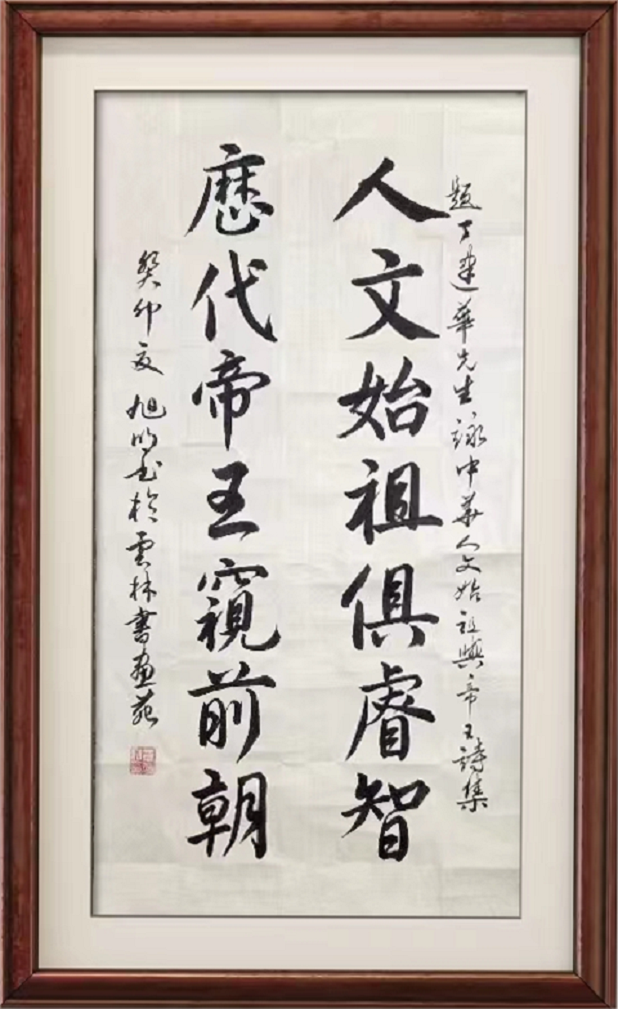 題丁建華先生詠中華人文始祖與帝王詩集
人文始祖俱睿智
歷代帝王窺前朝
癸卯夏旭明書於雲林書畫苑